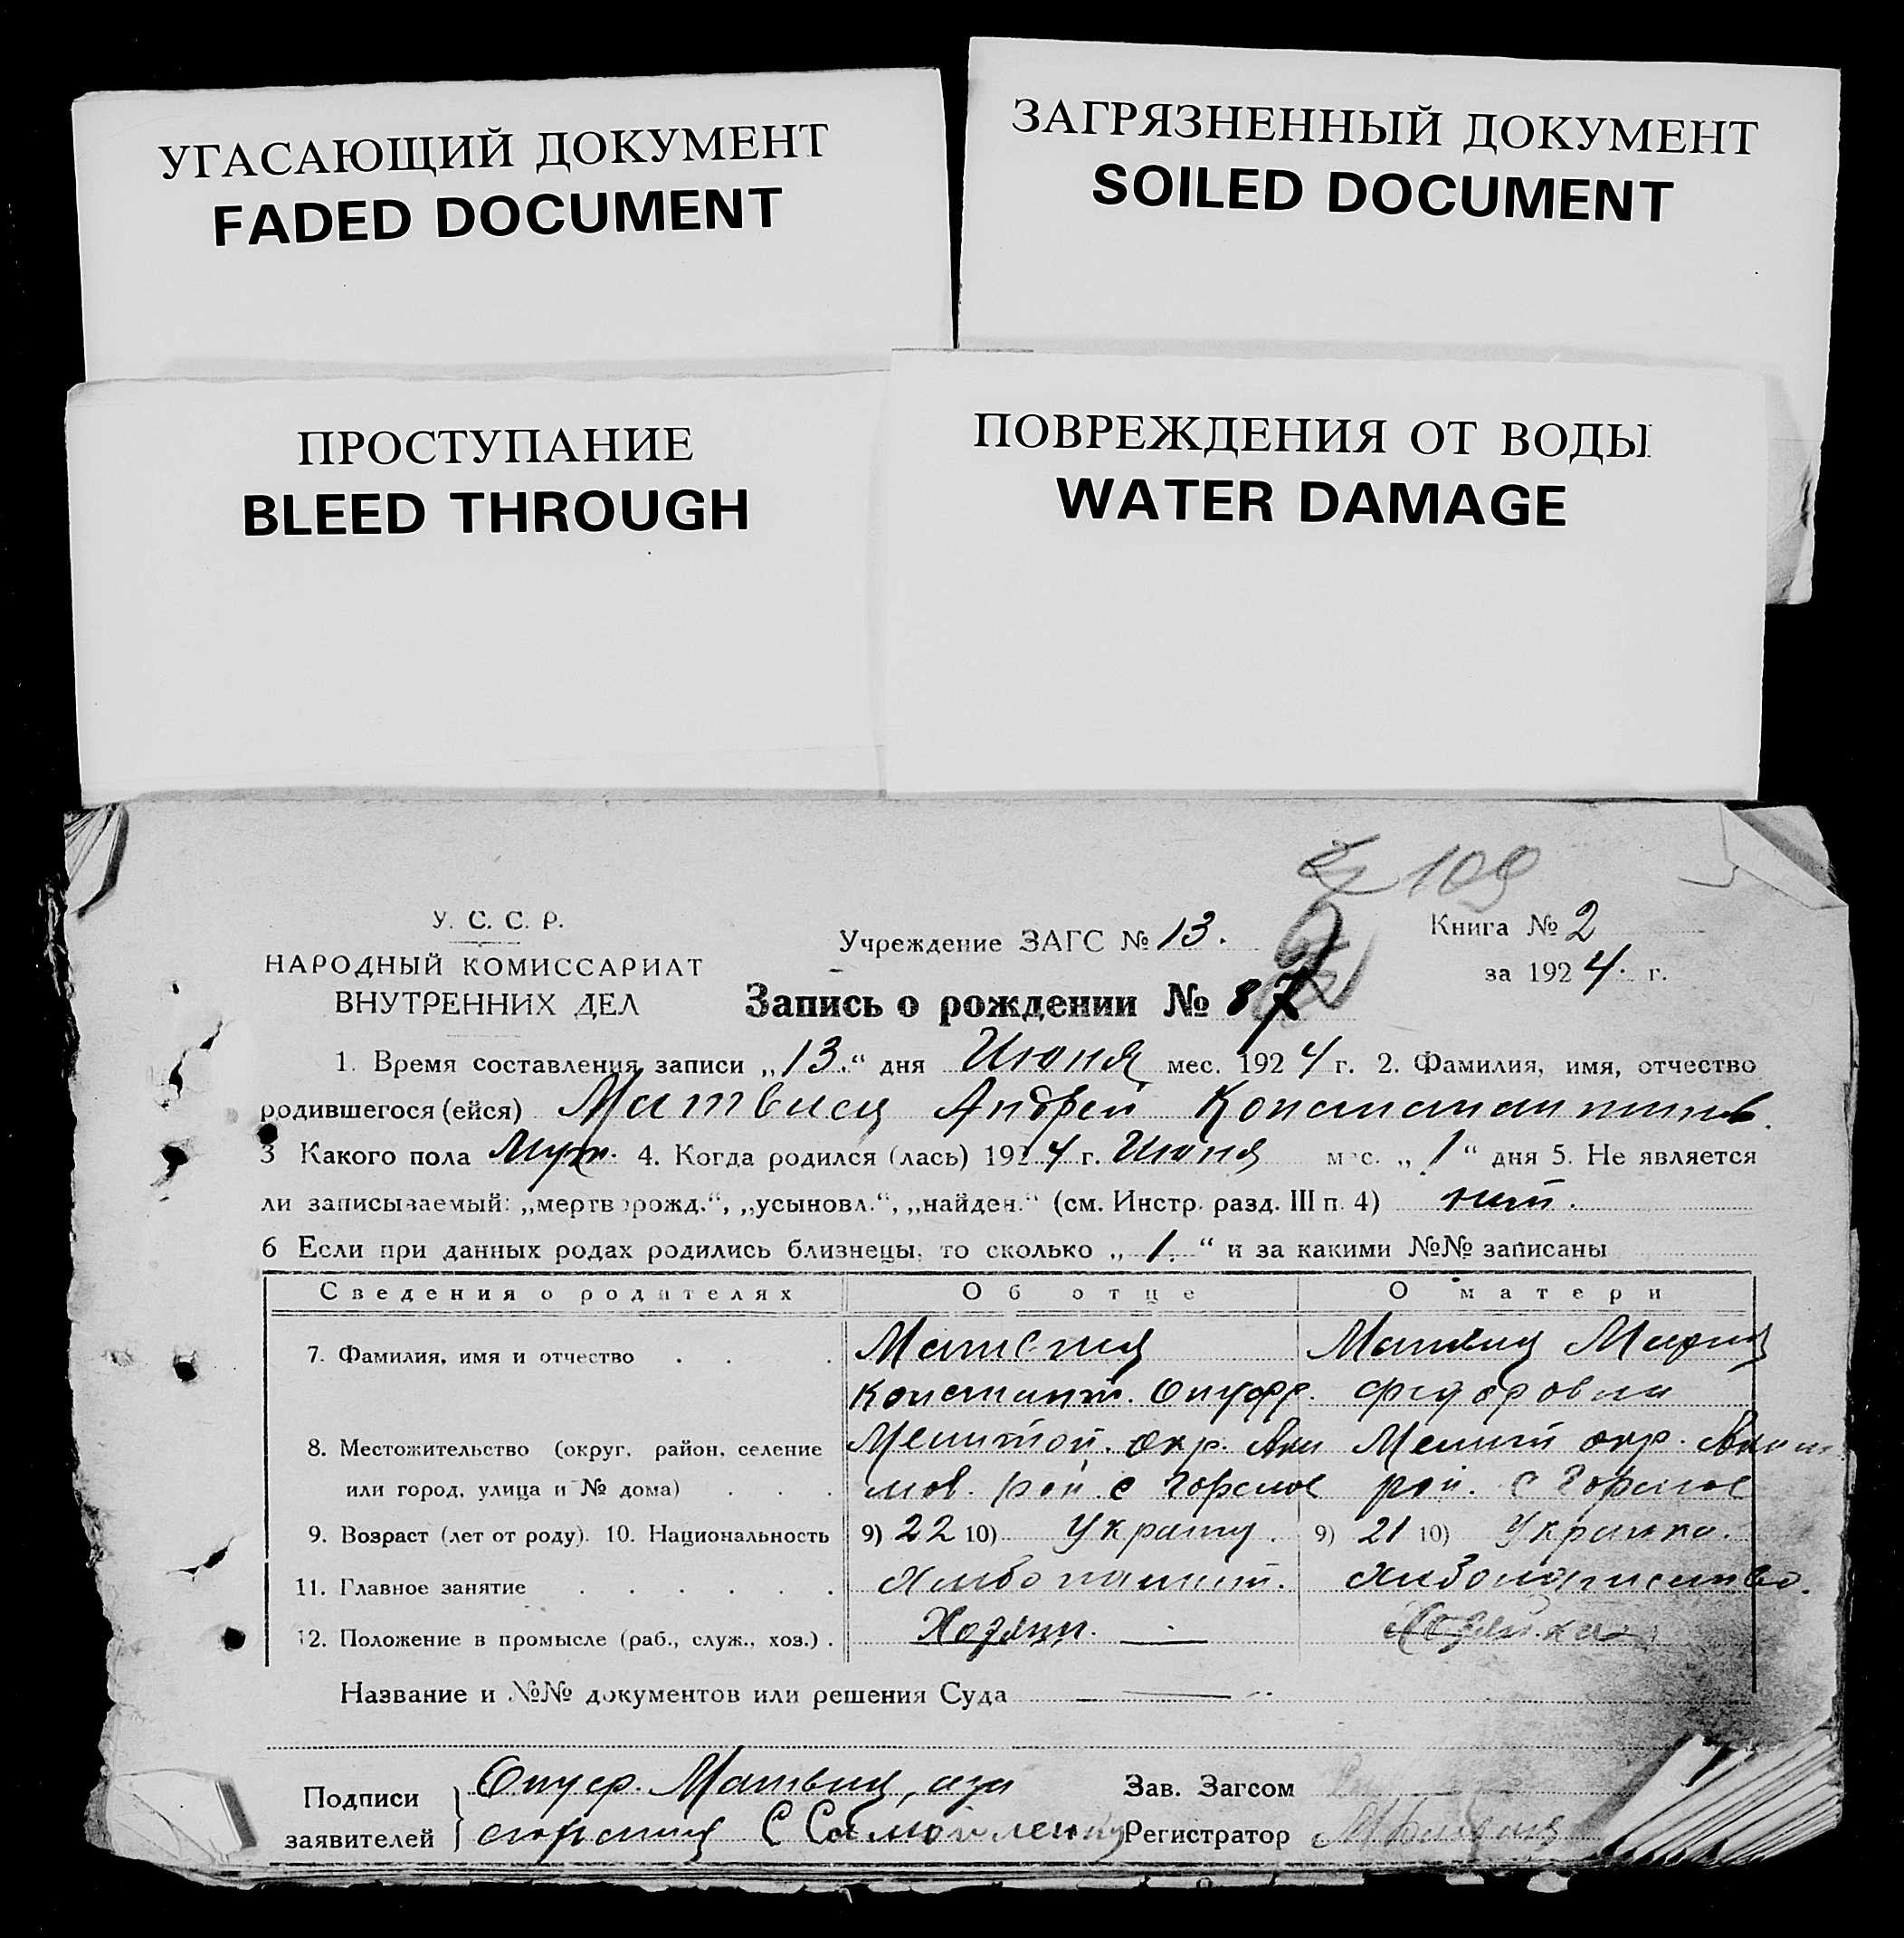 УГАСАЮЩИЙ ДОКУМЕНТ
FADED DOCUMENT
ЗАГРЯЗНЕННЫЙ ДОКУМЕНТ
SOILED DOCUMENT
ПРОСТУПАНИЕ
BLEED THROUGH
ПОВРЕЖДЕНИЯ ОТ ВОДЫ
WATER DAMAGE
109
У. С. С. Р.
НАРОДНЫЙ КОМИССАРИАТ
ВНУТРЕННИХ ДЕЛ
Учреждение ЗАГС № 13.
Книга № 2
за 1924. г.
Запись о рождении № 87
1. Время составления записи „13.“ дня Июня мес. 1924 г. 2. Фамилия, имя, отчество
родившегося (ейся) Матвиец Андрей Константинов.
3 Какого пола Муж. 4. Когда родился (лась) 1924 г. Июня мес. „1“ дня 5. Не является
ли записываемый: „мертворожд.“, „усыновл.“, „найден.“ (см. Инстр. разд. III п. 4)
6 Если при данных родах родились близнецы, то сколько „1.“ и за какими №№ записаны
Сведения о родителях Об отце О матери
7. Фамилия, имя и отчество . . . Мария
Константин. Онуфр. Федоровна
8. Местожительство (округ, район, селение Мелитой. окр. Аки Мелит окр.
или город, улица и № дома) . . . мов. рой. с Горелое рой. с Горелое
9. Возраст (лет от роду). 10. Национальность 9) 22 10) Украинц. 9) 21 10) Украинка.
11. Главное занятие . . . . . . Хлебопашест. Хлебопашество.
12. Положение в промысле (раб., служ., хоз.) . Хозяин. — Хозяйка
Название и №№ документов или решения Суда —
Подписи
заявителей
Онуф. Матвиец, а за
С Самойленко
Зав. Загсом
Регистратор